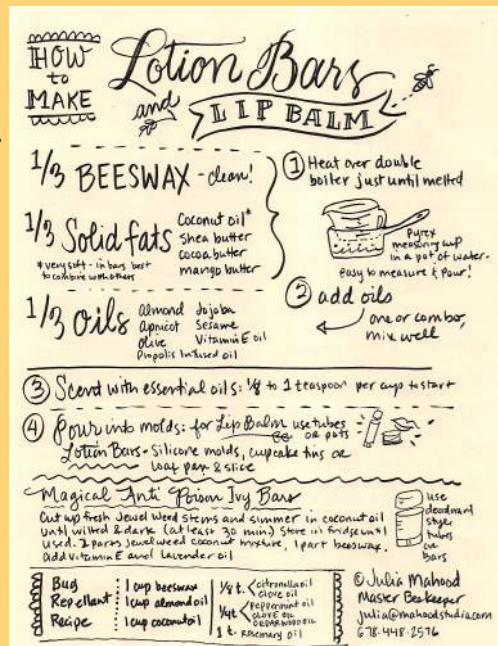 HOW
to
MAKE
Lotion Bars
and
LIP BALM
1/3 BEESWAX - clean!
1/3 Solid fats
*very soft - in bars best
to combine with others
Coconut oil*
Shea butter
cocoa butter
mango butter
1/3 Oils
Almond Jojoba
Apricot Sesame
Olive Vitamin E oil
Propolis Infused oil
① Heat over double
boiler just until melted
Pyrex
measuring cup
in a pot of water.
easy to measure & pour!
② add oils
one or combo,
mix well
③ Scent with essential oils: 1/8 to 1 teaspoon per cup to start
④ Pour into molds: for Lip Balm use tubes
or pots
Lotion Bars - Silicone molds, cupcake tins or
loaf pan & slice
Magical Anti Poison Ivy Bars
Cut up fresh Jewel Weed stems and simmer in coconut oil
until wilted & dark (at least 30 min) Store in fridge until
used. 2 parts jewelweed coconut mixture, 1 part beeswax.
add vitamin E and lavender oil
use
deodorant
style
tubes
or
bars
Bug
Repellant
Recipe
1 cup beeswax
1 cup almond oil
1 cup coconut oil
1/8 t. citronella oil
clove oil
1/4 t peppermint oil
clove oil
cedarwood oil
1 t. rosemary oil
© Julia Mahood
Master Beekeeper
julia@mahoodstudio.com
678-448-2576